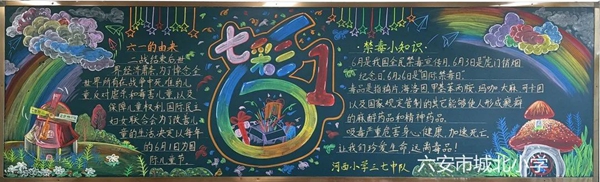 六一的由来
二战结束后世
界经济萧条,为了悼念全
世界所有在战争中死难的儿
童,反对虐杀和毒害儿童,以及
保障儿童权利,国际民主
妇女联合会为了改善儿
童的生活决定以每年
的6月1日为国
际儿童节。
七彩
61
·禁毒小知识·
6月是我国全民禁毒宣传月,6月3日是虎门销烟
纪念日 6月26日是国际禁毒日。
毒品是指鸦片、海洛因、甲基苯丙胺、吗啡、大麻、可卡因
以及国家规定管制的其它能够使人形成瘾癖
的麻醉药品和精神药品。
吸毒严重危害身心健康,加速死亡,
让我们珍爱生命,远离毒品!
河西小学三七中队
六安市城北小学